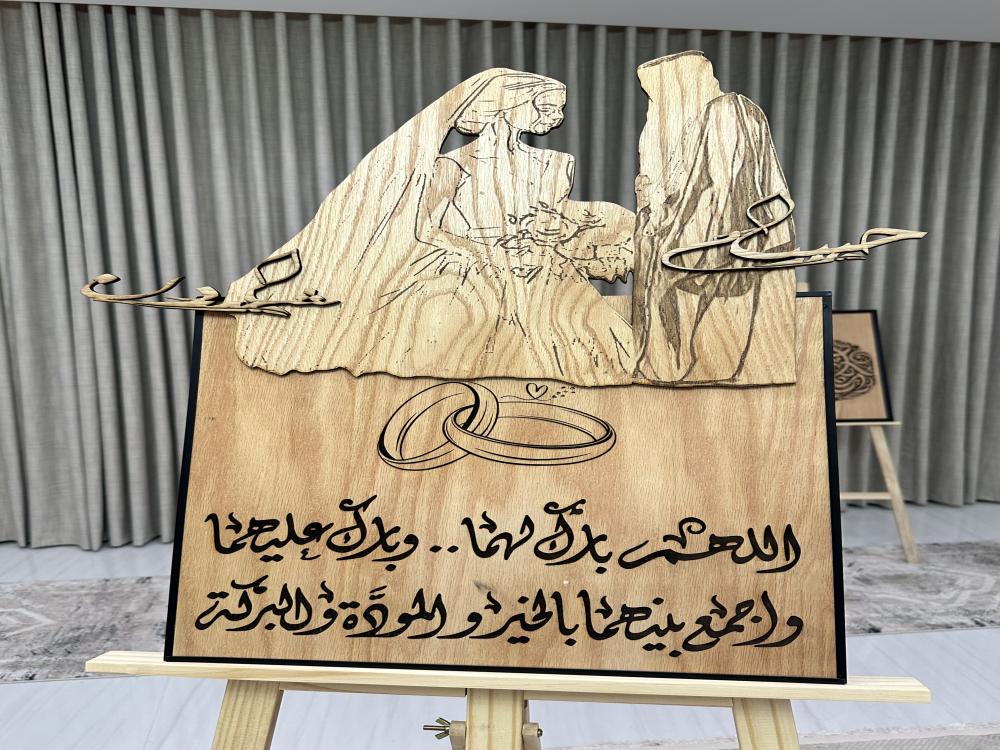 اللهم بارك لهما .. وبارك عليهما
واجمع بينهما بالخير والمودَّة والبركة